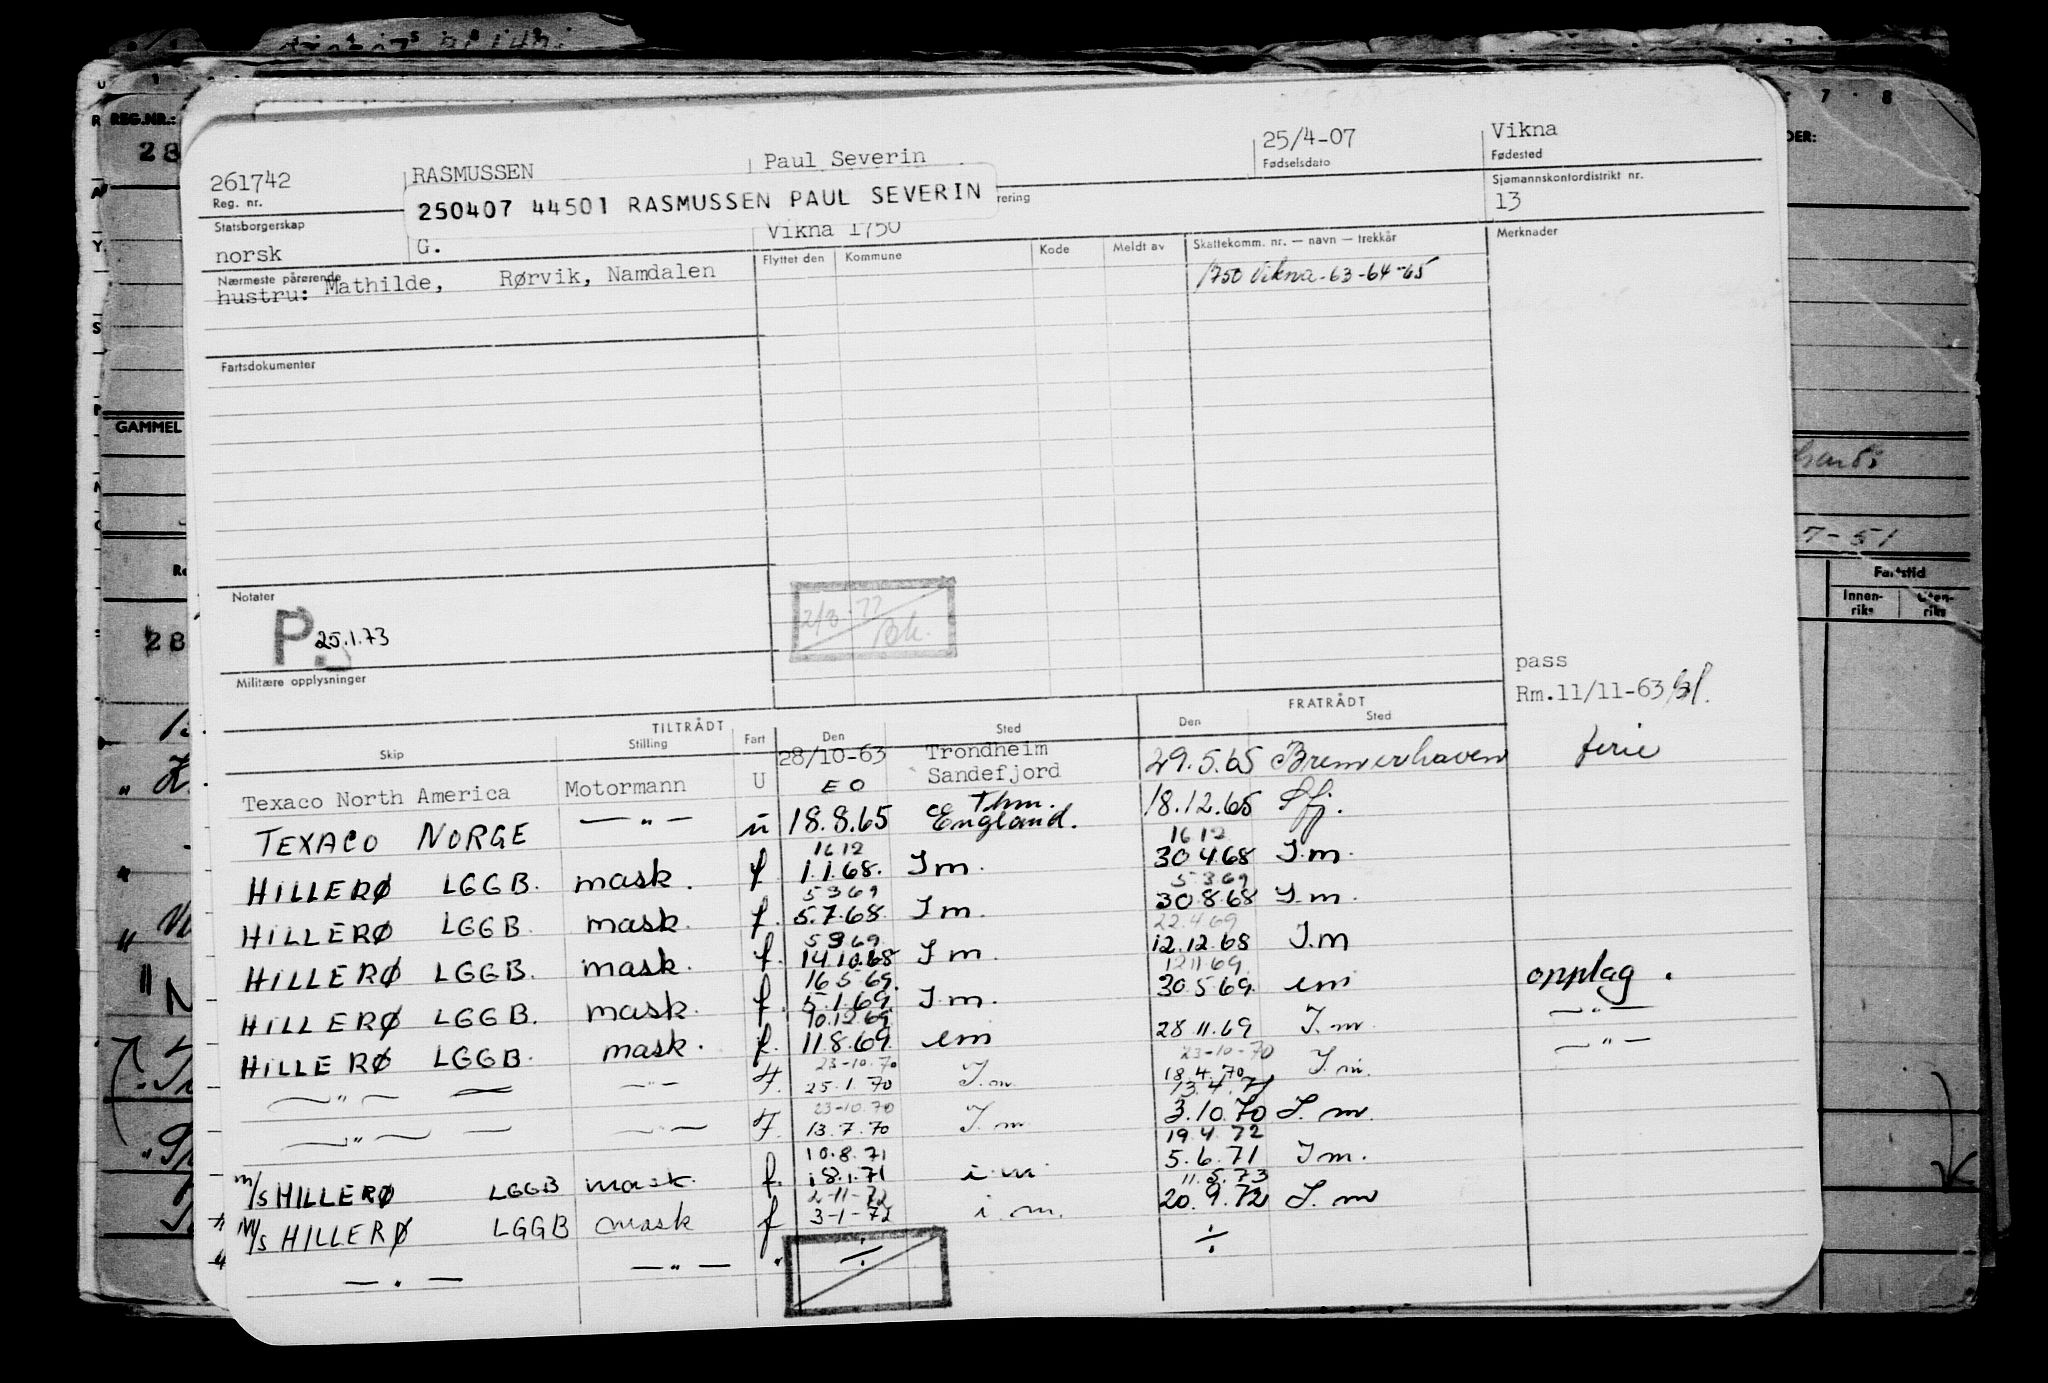 261742 RASMUSSEN Paul Severin 25/4-07 Vikna
Reg. nr. Fødselsdato Fødested
250407 44501 RASMUSSEN PAUL SEVERIN
Statsborgerskap Sjømannskontordistrikt nr.
norsk G. Vikna 1750 13
Nærmeste pårørende Flyttet den Kommune Kode Meldt av Skattekomm. nr. — navn — trekkår Merknader
hustru: Mathilde, Rørvik, Namdalen 1750 Vikna-63-64-65
Fartsdokumenter
Notater
P. 25.1.73
Militære opplysninger
pass
Rm.11/11-63
TILTRÅDT FRATRÅDT
Skip Stilling Fart Den Sted Den Sted
Texaco North America Motormann U 28/10-63 Trondheim Sandefjord 29.5.65 Bremerhaven ferie
EO
TEXACO NORGE —"— u 18.8.65 Thm. England. 18.12.65 Sfj.
16 12 16 12
HILLERØ LGGB. mask. f 1.1.68. I m. 30.4.68 I.m.
5 3 69 5 3 69
HILLERØ LGGB. mask. f. 5.7.68. I m. 30.8.68 I.m.
5 3 69. 22.4.69
HILLERØ LGGB. mask. f. 14.10.68 I m. 12.12.68 I.m
16 5 69. 12 11 69.
HILLERØ LGGB. mask. f. 5.1.69 I.m. 30.5.69. im opplag.
10.12.69
HILLERØ LGGB. mask. f. 11.8.69 im 28.11.69 I.m. —"—
23-10.70 23-10-70
—"— — —"— F. 25.1.70 I.m. 18.4.70 I.m. —"—
23-10.70 13.4.71
—"— — —"— F. 13.7.70 I.m 3.10.70 I.m.
10.8.71 19.4.72
m/s HILLERØ LGGB mask. f. 18.1.71 i.m 5.6.71 I m.
2-11-72 11.5.73
M/s HILLERØ LGGB mask f 3-1-72 i.m. 20.9.72 I.m
—"— —"— " ÷ ÷
REG.NR.:
28
GAMMEL
7-51
Fartstid
Innen-
riks
Uten-
riks
28